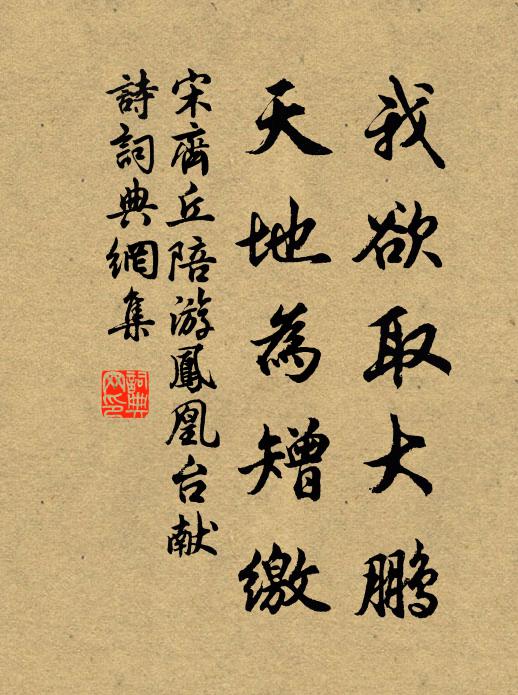 我欲取大鹏
天地為矰繳
宋齊丘陪游鳳凰台献
詩詞典網集
詞典網印